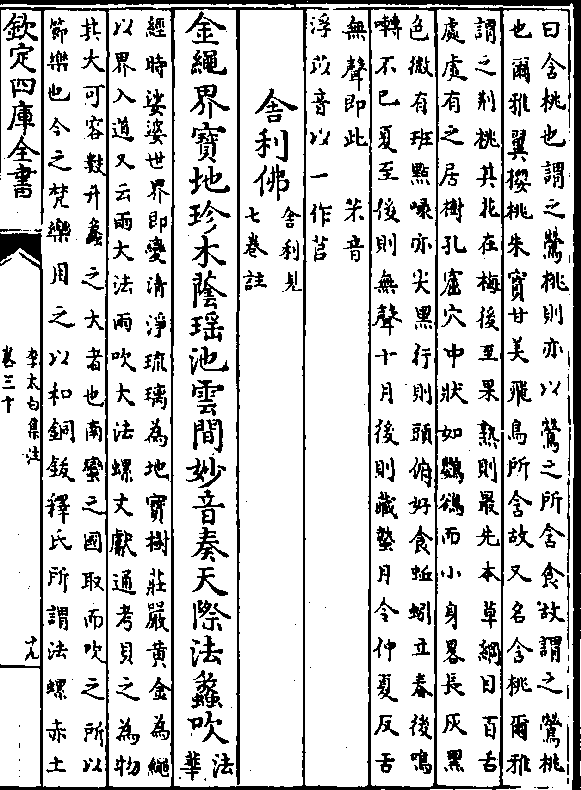 曰含桃也謂之鶯桃則亦以鶯之所含食故謂之鶯桃
也爾雅翼櫻桃朱實甘美飛鳥所含故又名含桃爾雅
謂之荆桃其花在梅後至果熟則最先本草綱目百舌
處處有之居樹孔窟穴中狀如鸜鵒而小身畧長灰黑
色微有班點喙亦尖黑行則頭俯好食蚯蚓立春後鳴
囀不已夏至後則無聲十月後則藏蟄月令仲夏反舌
無聲即此 芣音
浮苡音以一作苢
舍利佛 舍利見
七卷註
金繩界寶地珍木蔭瑶池雲間妙音奏天際法蠡吹 法
華
經時娑婆世界即變清淨琉璃為地寶樹莊嚴黄金為繩
以界八道又云雨大法雨吹大法螺文獻通考貝之為物
其大可容數升蠡之大者也南蠻之國取而吹之所以
節樂也今之梵樂用之以和銅鈸釋氏所謂法螺赤土
欽定四庫全書
李太白集注
卷三十
十九